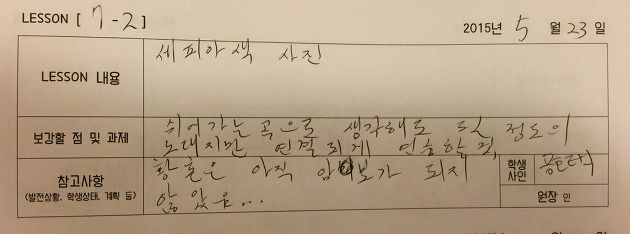 LESSON [ 7-2 ]
2015년 5 월 23 일
LESSON 내용
세피아색 사진
보강할 점 및 과제
쉬어가는 곡으로 생각해도 될 정도의
노래지만 연결되게 연습할 것,
참고사항
(발전상황, 학생상태, 계획 등)
황홀은 아직 암보가 되지
않았음...
학생
사인
원장 인